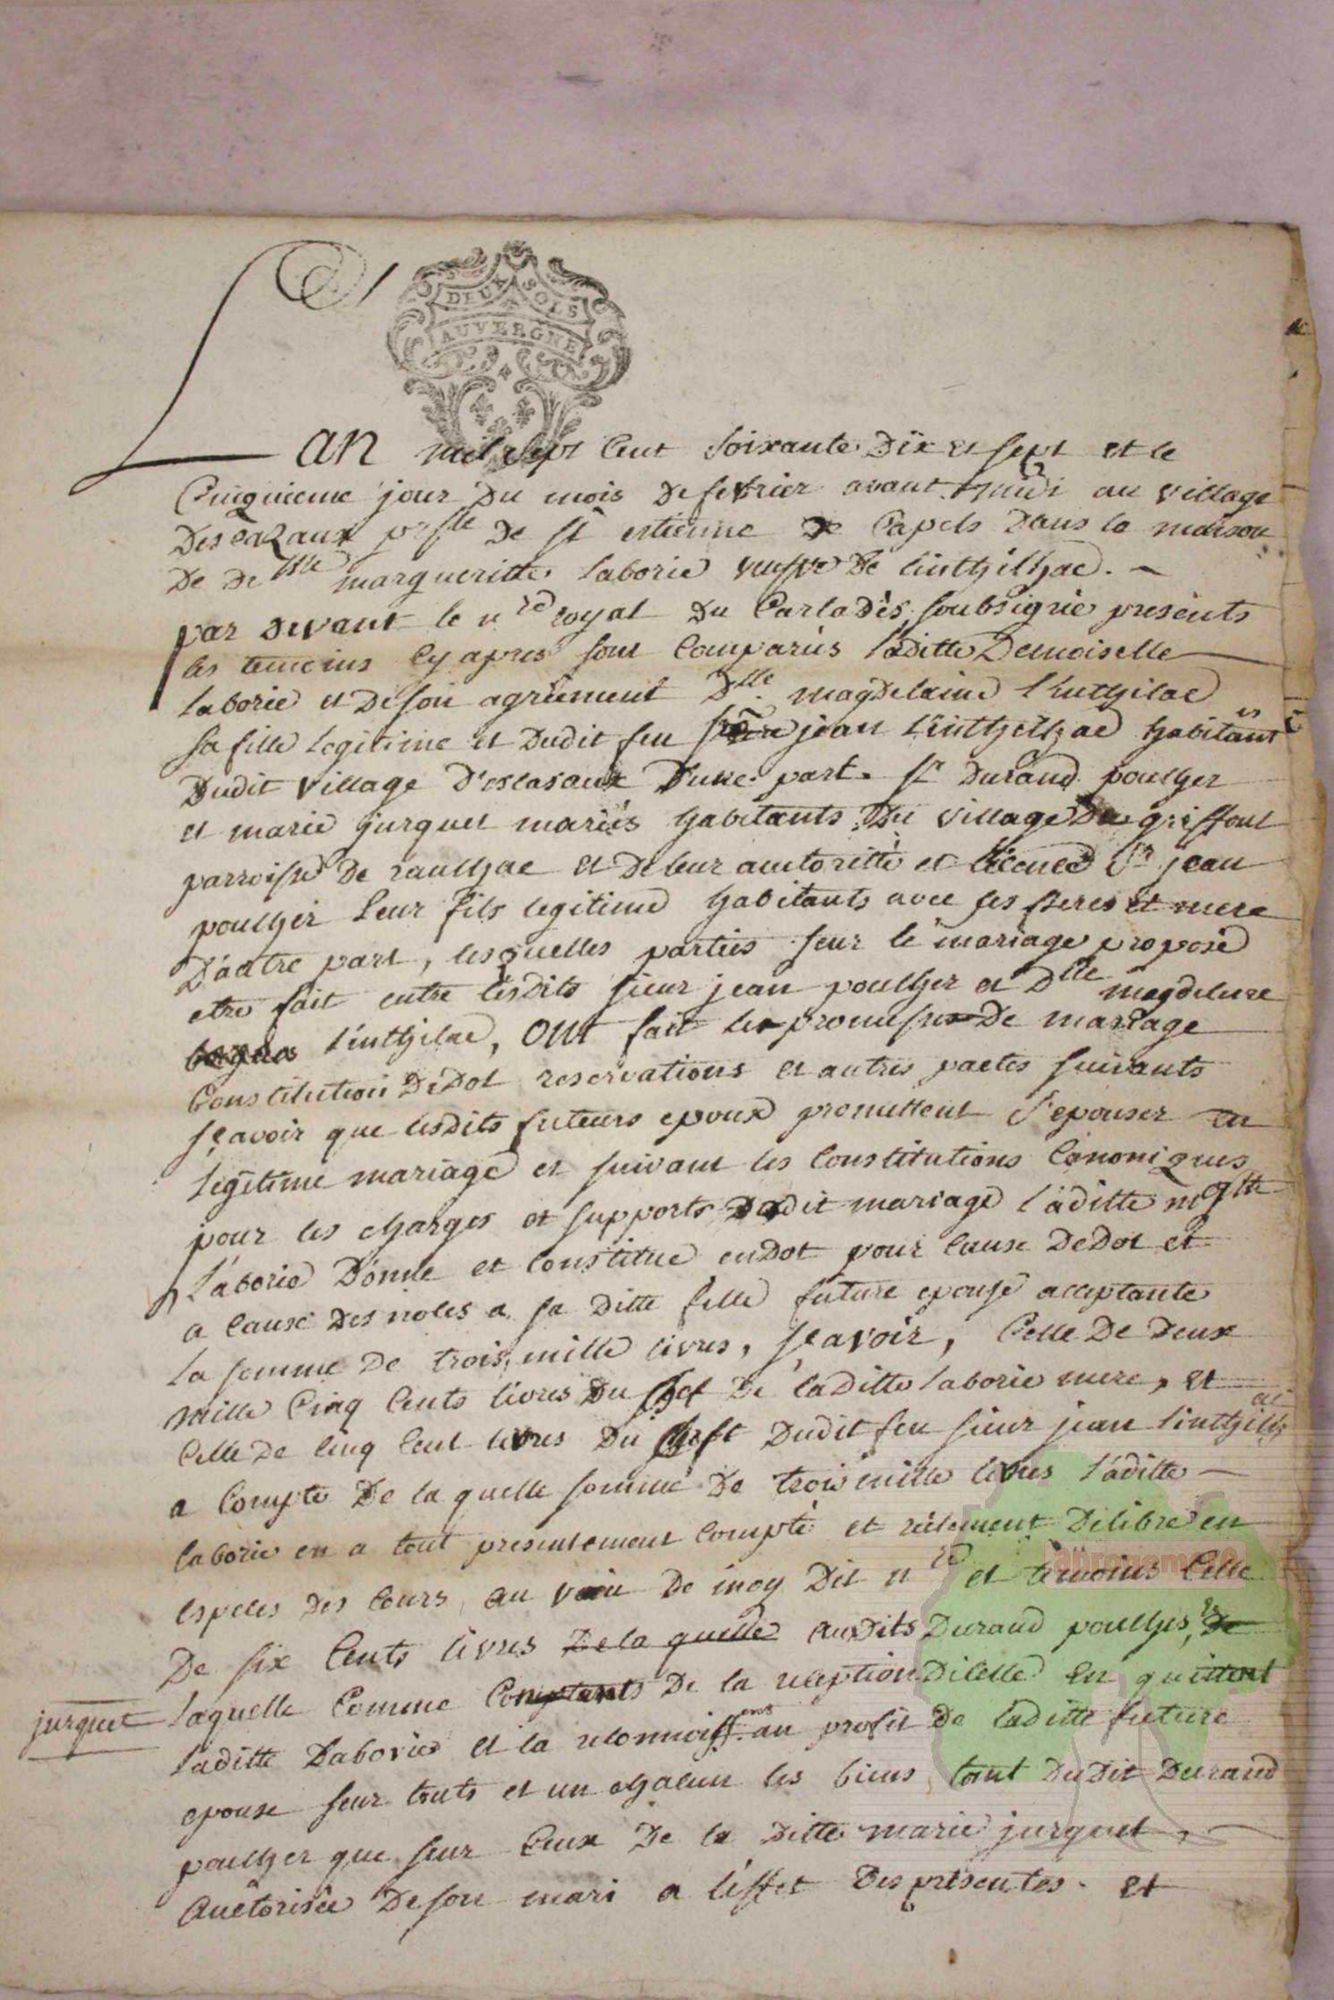 DEUX SOLS
AUVERGNE
L'an mil sept cent soixante Dix et sept et le
Cinquieme jour Du mois Defevrier avant midi au village
de St estienne de Capels Dans la maison
De Delle margueritte laborie veufve De linthilhac. —
par devant le nre royal Du Carladès soubsigné presents
les temoins Cy apres sont Comparus laditte Demoiselle
laborie et Deson agrément Dlle magdelaine linthilac
sa fille legitime et Dudit feu jean linthilhac habitants
Dudit village D'escasaux D'une part. Sr Durand poulher
et marie jurquet mariés habitants Du village Du griffoul
parroisse De raulhac et Deleur authorité et licence Sr jean
poulher leur fils legitime habitants avec ses peres et mere
D'autre part, lesquelles parties seur le mariage proposé
etre fait entre lesdits sieur jean poulher et Dlle magdeleine
linthilac, ont fait les promesses De mariage
Constitution Dedot reservations et autres pactes suivants
sçavoir que lesdits futeurs epoux promettent s'epouser en
legitime mariage et suivant les Constitutions Canoniques
pour les charges et supports Dudit mariage l'aditte
laborie Donne et Constitue endot pour Cause Dedot et
a Cause Des noces a sa Ditte fille future epouse acceptante
la somme De trois mille livres, sçavoir, Celle De Deux
mille Cinq Cents livres Du chef De laditte laborie mere, et
Celle De Cinq Cent livres Du cheft Dudit feu sieur jean linthilhac
a Compte De la quelle somme De trois mille livres l'aditte —
laborie en a tout presentement Compté et réelement Délibré en
especes Des Cours, au veu De moy Dit nre et témoins Celle
De six Cents livres De la quelle auxDits Durand poulhes, De
jurquet
laquelle Comme Comptants De la reception Dicelle en quittent
laditte Laborie et la reconnoissent au profit De laditte future
epouse seur touts et un chacun les biens tant DuDit Durand
poulher que seur Ceux De la Ditte marie jurquet, —
Auctorisée Deson mari a l'effet Des présentes. et